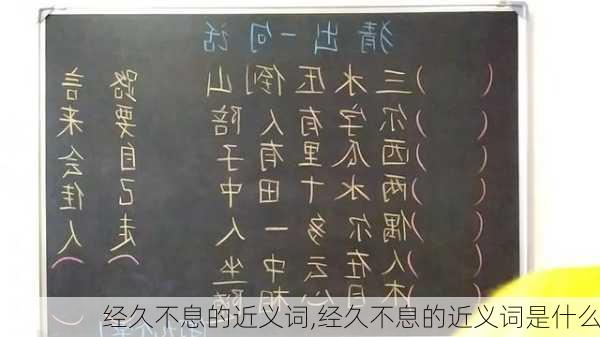 猜出一句话
三水压倒山
尔字有人陪
西瓜里有子
两水十田中
偶尔多一人
人在云中坐
木目心相随
路要自己走（
言来会佳人（
经久不息的近义词,经久不息的近义词是什么